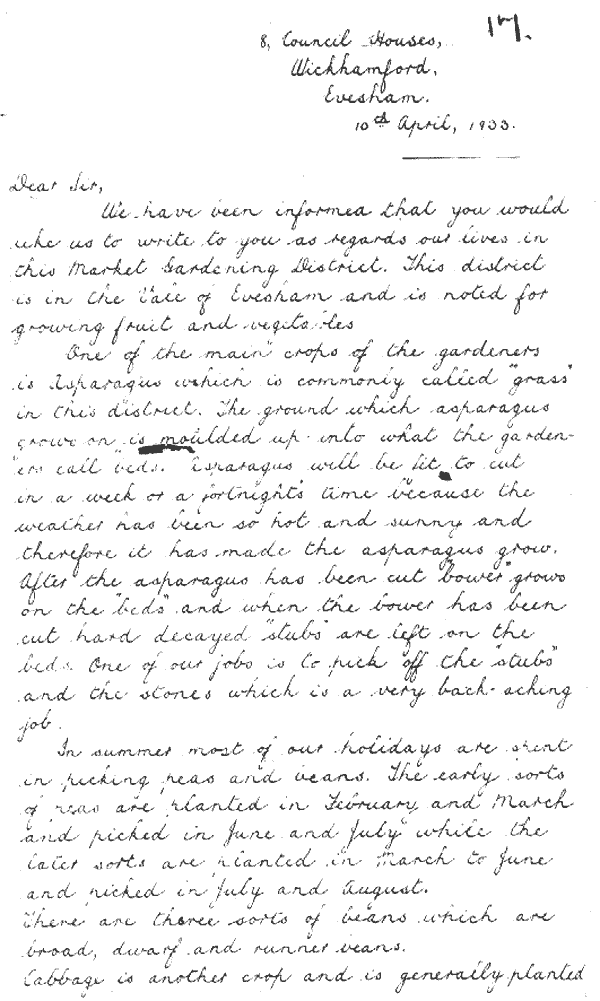 17.
8, Council Houses,
Wickhamford,
Evesham.
10th April, 1933.
Dear Sir,
We have been informed that you would
like us to write to you as regards our lives in
this Market Gardening District. This district
is in the Vale of Evesham and is noted for
growing fruit and vegitables
One of the main crops of the gardeners
is Asparagus which is commonly called "grass"
in this district. The ground which asparagus
grows on is moulded up into what the garden-
ers call "beds. Asparagus will be fit to cut
in a week or a fortnight's time because the
weather has been so hot and sunny and
therefore it has made the asparagus grow.
After the asparagus has been cut "bower" grows
on the "beds" and when the bower has been
cut hard decayed "stubs" are left on the
beds. One of our jobs is to pick off the "stubs"
and the stones which is a very back-aching
job.
In summer most of our holidays are spent
in picking peas and beans. The early sorts
of peas are planted in February and March
and picked in June and July while the
later sorts are planted in March to June
and picked in July and August.
There are three sorts of beans which are
broad, dwarf and runner beans.
Cabbage is another crop and is generally planted